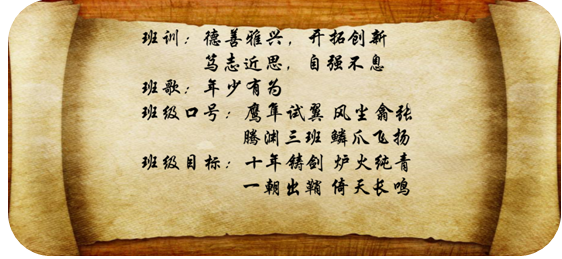 班训：德善雅兴，开拓创新
笃志近思，自强不息
班歌：年少有为
班级口号：鹰隼试翼 风尘翕张
腾渊三班 鳞爪飞扬
班级目标：十年铸剑 炉火纯青
一朝出鞘 倚天长鸣